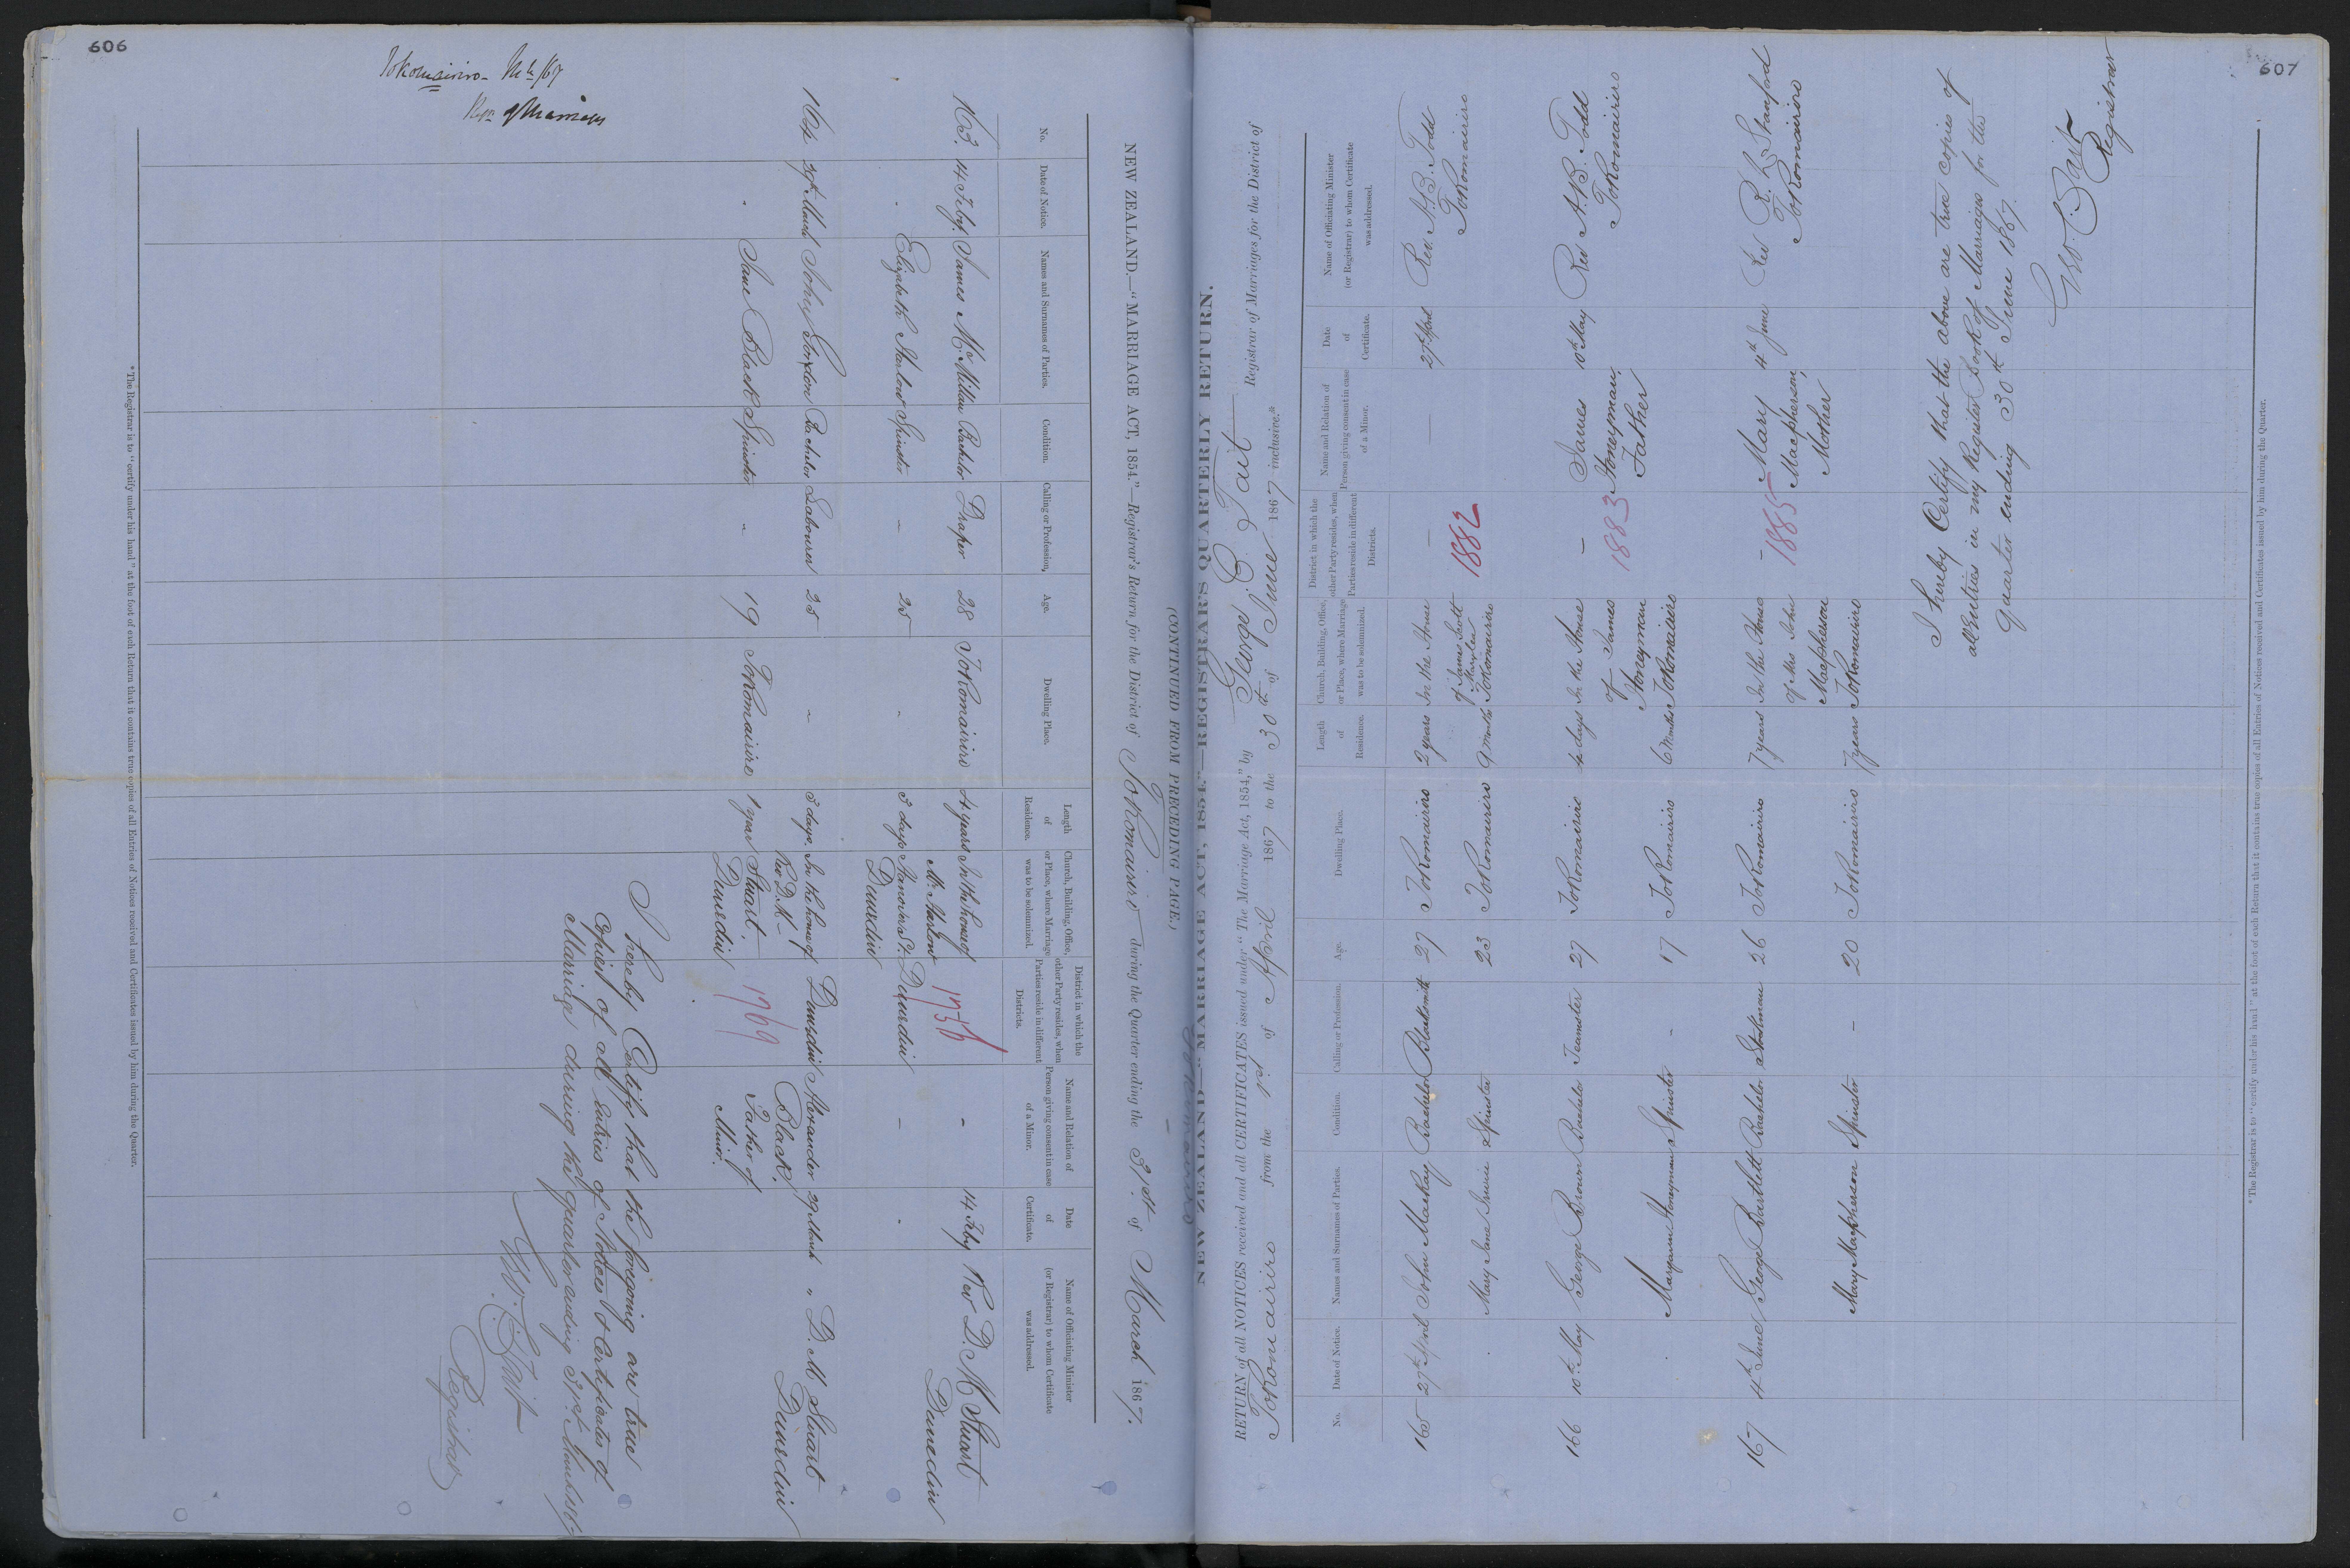 606
Tokomairiro - Mch /67
NEW ZEALAND.—"MARRIAGE ACT, 1854."—Registrar's Return for the District of Tokomairiro during the Quarter ending the 31st of March 1867.
(CONTINUED FROM PRECEDING PAGE.)
No. Date of Notice. Names and Surnames of Parties. Condition. Calling or Profession. Age. Dwelling Place. Length of Residence. Church, Building, Office, or Place, where Marriage was to be solemnized. District in which the other Party resides, when Parties reside in different Districts. Name and Relation of Person giving consent in case of a Minor. Date of Certificate. Name of Officiating Minister (or Registrar) to whom Certificate was addressed.
163. 14 Feby. James McMillan Bachelor Draper 28 Tokomairiro 4 years In the house of - 14 Feby Rev D. M Stuart
Mr. Harlow 1756 Dunedin
" Elizabeth Harlow Spinster - 25 " 3 days Hanover St. Dunedin -
Dunedin
164 29th March John Gordon Bachelor Labourer 25 " 3 days In the house of Dunedin Alexander 29 March " D. M Stuart
Rev D. M - Black, Dunedin
" Jane Black Spinster " 19 Tokomairiro 1 year Stuart. 1769 Father of
Dunedin Minor.
I hereby Certify that the foregoing are true
Copies of all entries of Notices & Certificates of
Marriage during the quarter ending 31st March 1867
Registrar
* The Registrar is to "certify under his hand" at the foot of each Return that it contains true copies of all Entries of Notices received and Certificates issued by him during the Quarter.
607
NEW ZEALAND—"MARRIAGE ACT, 1854."—REGISTRAR'S QUARTERLY RETURN.
RETURN of all NOTICES received and all CERTIFICATES issued under "The Marriage Act, 1854," by George C. Tait Registrar of Marriages for the District of
Tokomairiro from the 1st of April 1867 to the 30th of June 1867 inclusive.*
No. Date of Notice. Names and Surnames of Parties. Condition. Calling or Profession. Age. Dwelling Place. Length of Residence. Church, Building, Office, or Place, where Marriage was to be solemnized. District in which the other Party resides, when Parties reside in different Districts. Name and Relation of Person giving consent in case of a Minor. Date of Certificate. Name of Officiating Minister (or Registrar) to whom Certificate was addressed.
165 27th April John Mackay Bachelor Blacksmith 27 Tokomairiro 2 years In the House - — 27th April Rev. A. B. Todd
of James Scott Tokomairiro
Mary Jane Irvine Spinster 23 Tokomairiro 9 months Tokomairiro 1882
166 10th May George Brown Bachelor Teamster 27 Tokomairiro 4 days In the House - James 10th May Rev A. B. Todd
of James Honeyman, Tokomairiro
Honeyman 1883 Father
" Maryann Honeyman Spinster - 17 Tokomairiro 6 Months Tokomairiro
167 4th June George Bartlett Bachelor 26 Tokomairiro 7 years In the House - Mary 4th June Rev R. L. Stanford
of Mrs John 1885 Macpherson, Tokomairiro
Macpherson Mother
Mary Macpherson Spinster - 20 Tokomairiro 7 years Tokomairiro
I hereby Certify that the above are true copies of
all Entries in my Register Book of Marriages for the
quarter ending 30th June 1867.
Geo. C. Tait
Registrar
* The Registrar is to "certify under his hand" at the foot of each Return that it contains true copies of all Entries of Notices received and Certificates issued by him during the Quarter.